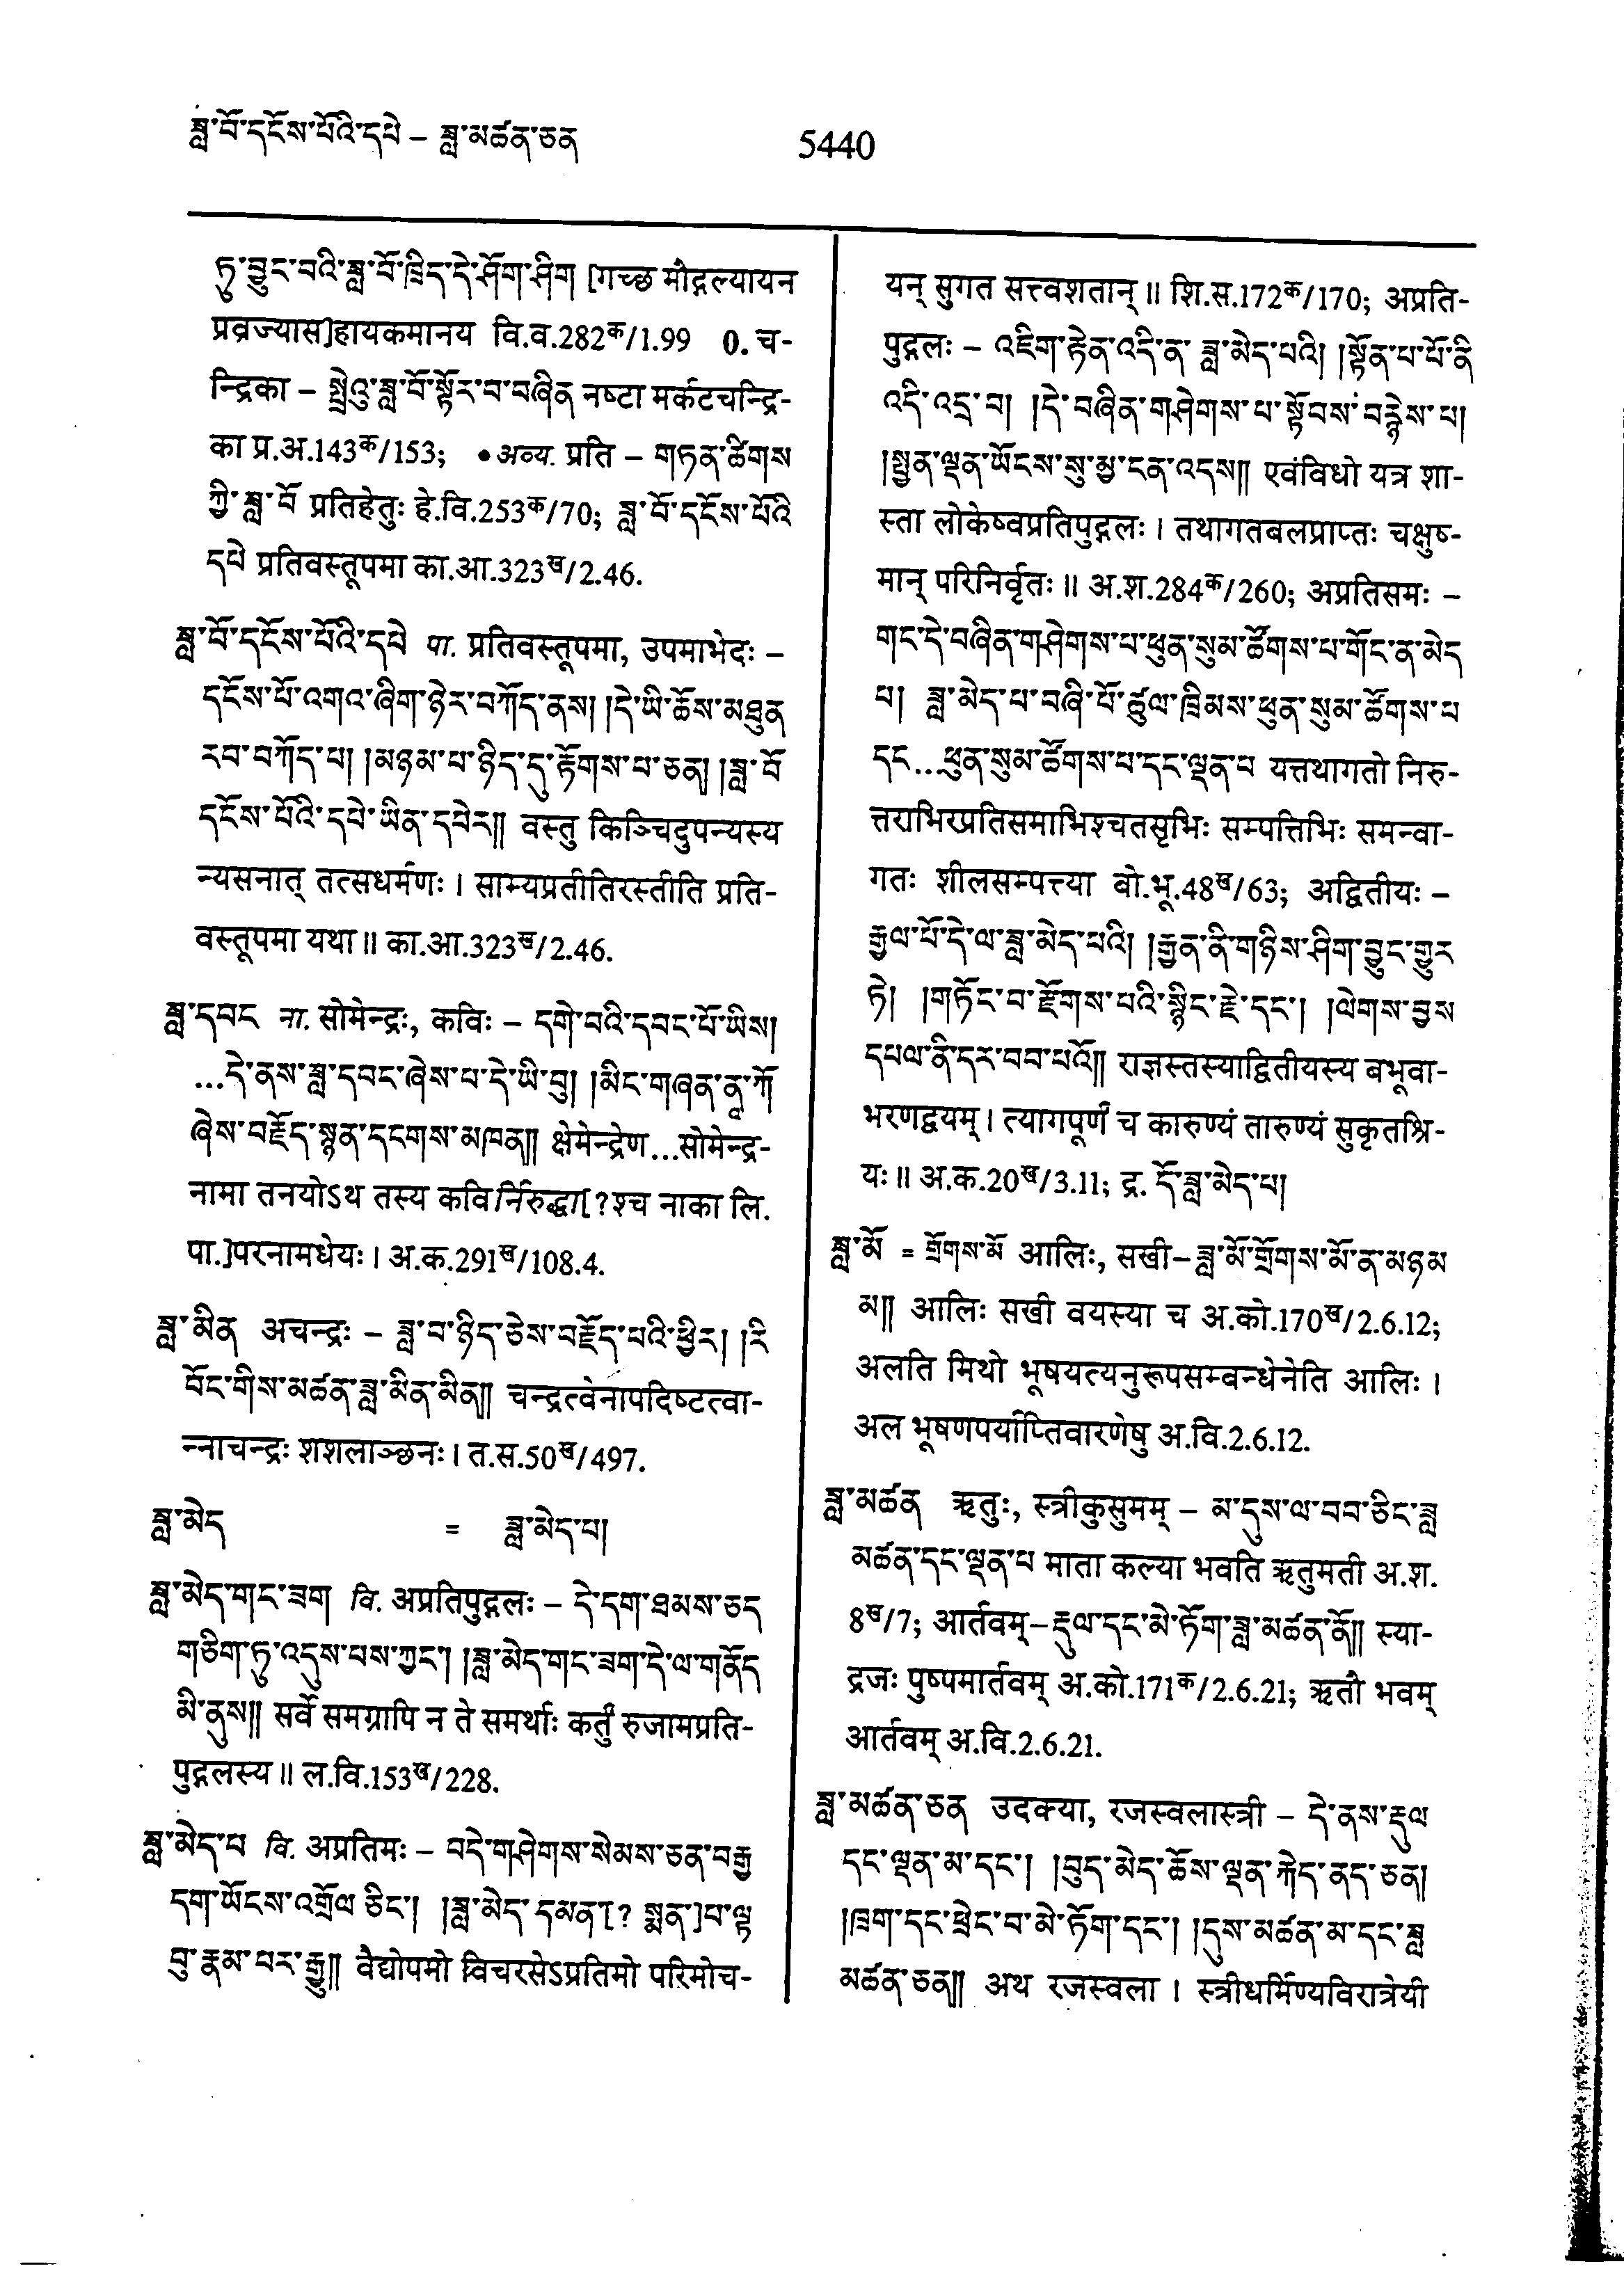 ཟླ་བོ་དངོས་པོའི་དཔེ – ཟླ་མཚན་ཅན
5440
ཏུ་བྱུང་བའི་ཟླ་བོ་ཁྲིད་དེ་ཤོག་ཤིག [गच्छ मौद्गल्यायन
प्रव्रज्यास]हायकमानय वि.व.282क/1.99 0. च-
न्द्रिका – སྤྲེའུ་ཟླ་བོ་སྟོར་བ་བཞིན नष्टा मर्कटचन्द्रि-
का प्र.अ.143क/153; • अव्य. प्रति – གཏན་ཚིགས
ཀྱི་ཟླ་བོ प्रतिहेतुः हे.वि.253क/70; ཟླ་བོ་དངོས་པོའི
དཔེ प्रतिवस्तूपमा का.आ.323ख/2.46.
ཟླ་བོ་དངོས་པོའི་དཔེ पा. प्रतिवस्तूपमा, उपमाभेदः –
དངོས་པོ་འགའ་ཞིག་ཉེར་བཀོད་ནས། །དེ་ཡི་ཆོས་མཐུན
རབ་བཀོད་པ། །མཉམ་པ་ཉིད་དུ་རྟོགས་པ་ཅན། །ཟླ་བོ
དངོས་པོའི་དཔེ་ཡིན་དཔེར།། वस्तु किञ्चिदुपन्यस्य
न्यसनात् तत्सधर्मणः । साम्यप्रतीतिरस्तीति प्रति-
वस्तूपमा यथा ॥ का.आ.323ख/2.46.
ཟླ་དབང ना. सोमेन्द्रः, कविः – དགེ་བའི་དབང་པོ་ཡིས།
...དེ་ནས་ཟླ་དབང་ཞེས་པ་དེ་ཡི་བུ། །མིང་གཞན་ནཱ་ཀོ
ཞེས་བརྗོད་སྙན་དངགས་མཁན།། क्षेमेन्द्रेण...सोमेन्द्र-
नामा तनयोऽथ तस्य कविर्निरुद्धा[?श्च नाका लि.
पा.]परनामधेयः । अ.क.291ख/108.4.
ཟླ་མིན अचन्द्रः – ཟླ་བ་ཉིད་ཅེས་བརྗོད་པའི་ཕྱིར། །རི
བོང་གིས་མཚན་ཟླ་མིན་མིན།། चन्द्रत्वेनापदिष्टत्वा-
न्नाचन्द्रः शशलाञ्छनः । त.स.50ख/497.
ཟླ་མེད = ཟླ་མེད་པ།
ཟླ་མེད་གང་ཟག वि. अप्रतिपुद्गलः – དེ་དག་ཐམས་ཅད
གཅིག་ཏུ་འདུས་པས་ཀྱང༌། །ཟླ་མེད་གང་ཟག་དེ་ལ་གནོད
མི་ནུས།། सर्वे समग्रापि न ते समर्थाः कर्तुं रुजामप्रति-
पुद्गलस्य ॥ ल.वि.153ख/228.
ཟླ་མེད་པ वि. अप्रतिमः – བདེ་གཤེགས་སེམས་ཅན་བརྒྱ
དག་ཡོངས་འགྲོལ་ཅིང་། །ཟླ་མེད་དམན་[? སྨན་]པ་ལྟ
བུ་རྣམ་པར་རྒྱུ།། वैद्योपमो विचरसेऽप्रतिमो परिमोच-
यन् सुगत सत्त्वशतान् ॥ शि.स.172क/170; अप्रति-
पुद्गलः – འཇིག་རྟེན་འདི་ན་ ཟླ་མེད་པའི། །སྟོན་པ་པོ་ནི
འདི་འདྲ་བ། །དེ་བཞིན་གཤེགས་པ་སྟོབས་བརྙེས་པ།
།སྤྱན་ལྡན་ཡོངས་སུ་མྱ་ངན་འདས།། एवंविधो यत्र शा-
स्ता लोकेष्वप्रतिपुद्गलः । तथागतबलप्राप्तः चक्षुष्-
मान् परिनिर्वृतः ॥ अ.श.284क/260; अप्रतिसमः –
གང་དེ་བཞིན་གཤེགས་པ་ཕུན་སུམ་ཚོགས་པ་གོང་ན་མེད
པ། ཟླ་མེད་པ་བཞི་པོ་ཚུལ་ཁྲིམས་ཕུན་སུམ་ཚོགས་པ
དང...ཕུན་སུམ་ཚོགས་པ་དང་ལྡན་པ यत्तथागतो निरु-
त्तराभिरप्रतिसमाभिश्चतसृभिः सम्पत्तिभिः समन्वा-
गतः शीलसम्पत्त्या बो.भू.48ख/63; अद्वितीयः –
རྒྱལ་པོ་དེ་ལ་ཟླ་མེད་པའི། །རྒྱན་ནི་གཉིས་ཤིག་བྱུང་གྱུར
ཏེ། །གཏོང་བ་རྫོགས་པའི་སྙིང་རྗེ་དང་། །ལེགས་བྱས
དཔལ་ནི་དར་བབ་པའོ།། राज्ञस्तस्याद्वितीयस्य बभूवा-
भरणद्वयम् । त्यागपूर्णं च कारुण्यं तारुण्यं सुकृतश्रि-
यः ॥ अ.क.20ख/3.11; द्र. དོ་ཟླ་མེད་པ།
ཟླ་མོ = གྲོགས་མོ आलिः, सखी– ཟླ་མོ་གྲོགས་མོ་ན་མཉམ
མ།། आलिः सखी वयस्या च अ.को.170ख/2.6.12;
अलति मिथो भूषयत्यनुरूपसम्बन्धेनेति आलिः ।
अल भूषणपर्याप्तिवारणेषु अ.वि.2.6.12.
ཟླ་མཚན ऋतुः, स्त्रीकुसुमम् – མ་དུས་ལ་བབ་ཅིང་ཟླ
མཚན་དང་ལྡན་པ माता कल्या भवति ऋतुमती अ.श.
8ख/7; आर्तवम्– རྡུལ་དང་མེ་ཏོག་ཟླ་མཚན་ནོ།། स्या-
द्रजः पुष्पमार्तवम् अ.को.171क/2.6.21; ऋतौ भवम्
आर्तवम् अ.वि.2.6.21.
ཟླ་མཚན་ཅན उदक्या, रजस्वलास्त्री – དེ་ནས་རྡུལ
དང་ལྡན་མ་དང་། །བུད་མེད་ཆོས་ལྡན་རྐེད་ནད་ཅན།
།ཁྲག་དང་ཕྲེང་བ་མེ་ཏོག་དང་། །དུས་མཚན་མ་དང་ཟླ
མཚན་ཅན།། अथ रजस्वला । स्त्रीधर्मिण्यविरात्रेयी